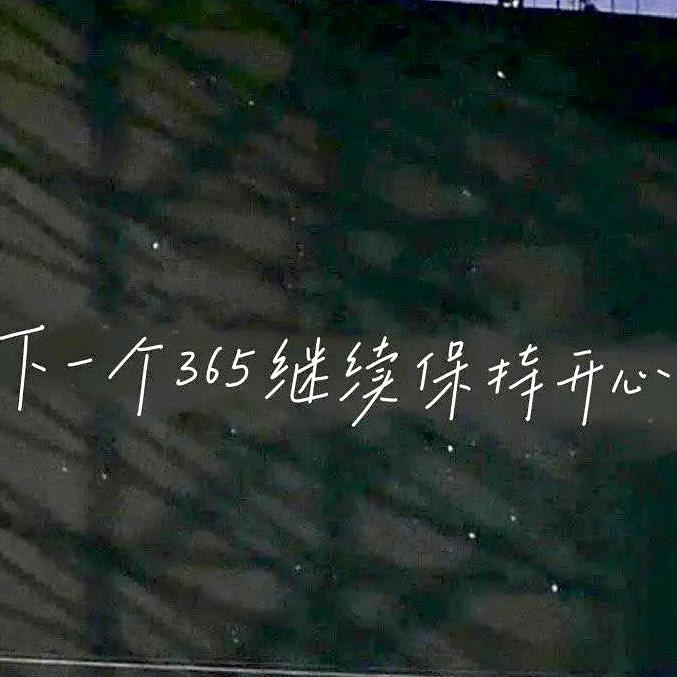 下一个365继续保持开心